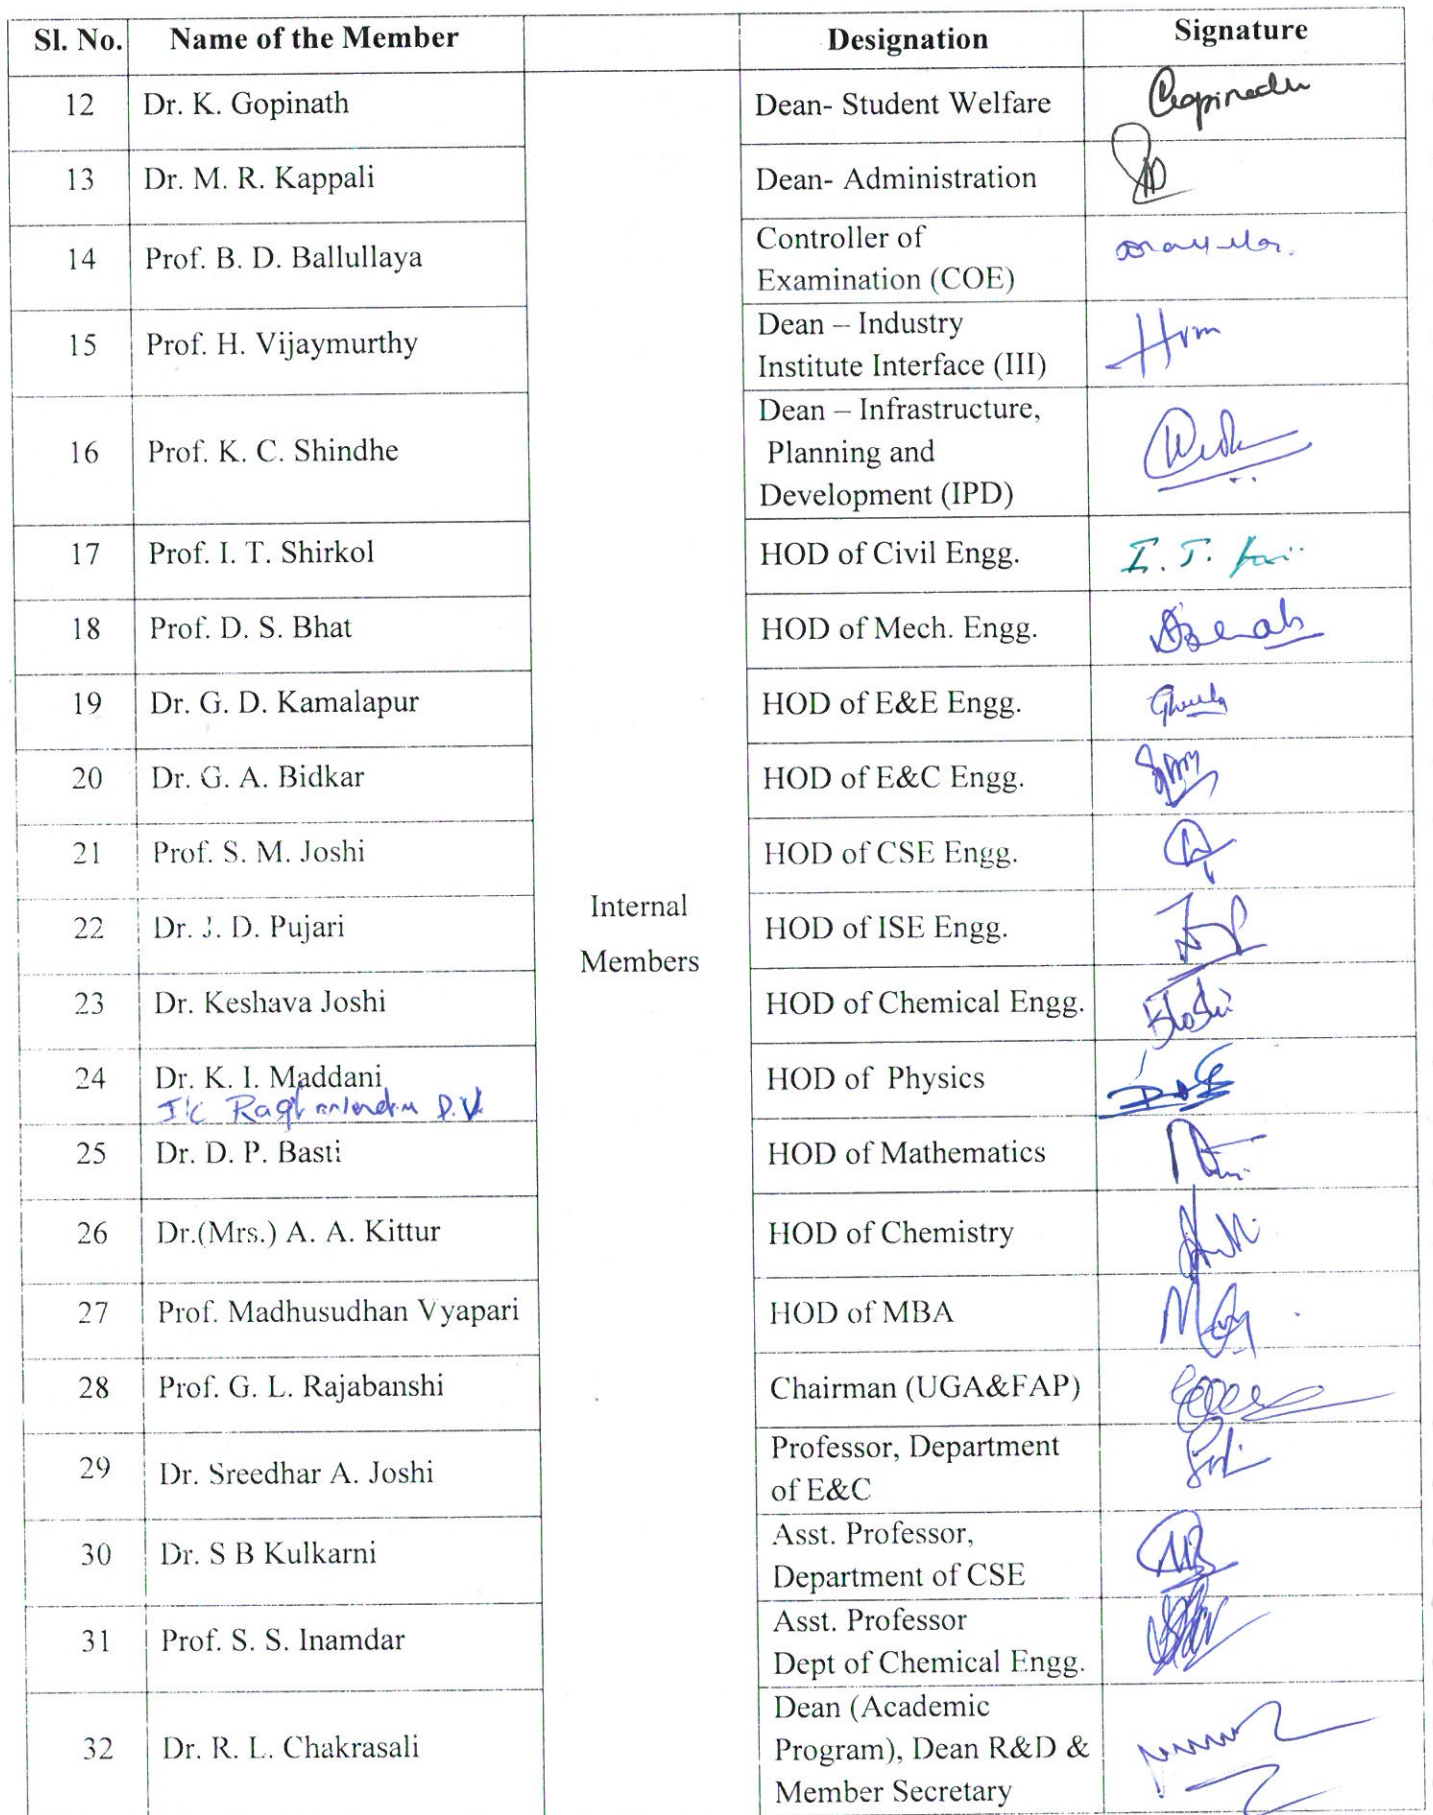 Sl. No. Name of the Member Designation Signature
12 Dr. K. Gopinath Dean- Student Welfare
13 Dr. M. R. Kappali Dean- Administration
14 Prof. B. D. Ballullaya Controller of
Examination (COE)
15 Prof. H. Vijaymurthy Dean – Industry
Institute Interface (III)
16 Prof. K. C. Shindhe Dean – Infrastructure,
Planning and
Development (IPD)
17 Prof. I. T. Shirkol HOD of Civil Engg. I. T.
18 Prof. D. S. Bhat HOD of Mech. Engg.
19 Dr. G. D. Kamalapur HOD of E&E Engg.
20 Dr. G. A. Bidkar HOD of E&C Engg.
21 Prof. S. M. Joshi HOD of CSE Engg.
Internal
Members
22 Dr. J. D. Pujari HOD of ISE Engg.
23 Dr. Keshava Joshi HOD of Chemical Engg.
24 Dr. K. I. Maddani HOD of Physics
25 Dr. D. P. Basti HOD of Mathematics
26 Dr.(Mrs.) A. A. Kittur HOD of Chemistry
27 Prof. Madhusudhan Vyapari HOD of MBA
28 Prof. G. L. Rajabanshi Chairman (UGA&FAP)
29 Dr. Sreedhar A. Joshi Professor, Department
of E&C
30 Dr. S B Kulkarni Asst. Professor,
Department of CSE
31 Prof. S. S. Inamdar Asst. Professor
Dept of Chemical Engg.
32 Dr. R. L. Chakrasali Dean (Academic
Program), Dean R&D &
Member Secretary